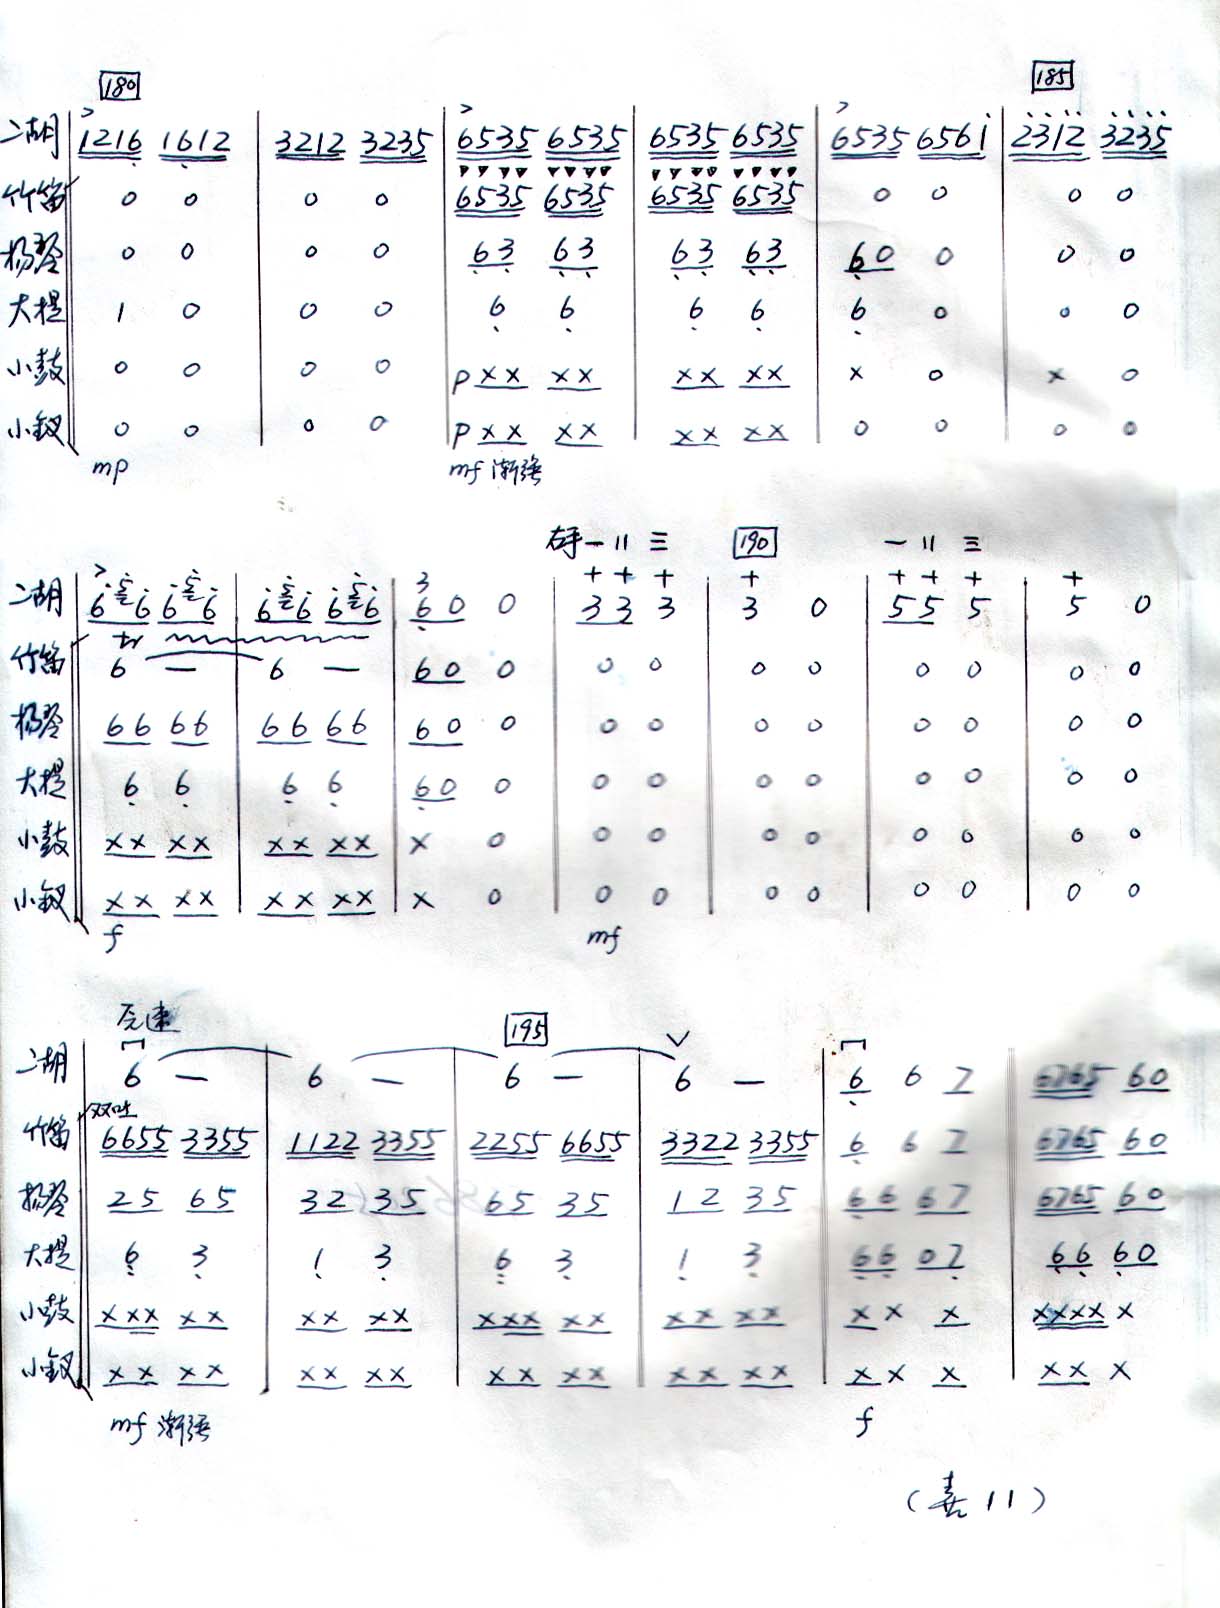 180 185
二胡 1216 1612 | 3212 3235 | 6535 6535 | 6535 6535 | 6535 6561 | 2312 3235
竹笛 0 0 | 0 0 | 6535 6535 | 6535 6535 | 0 0 | 0 0
扬琴 0 0 | 0 0 | 63 63 | 63 63 | 60 0 | 0 0
大提 1 0 | 0 0 | 6 6 | 6 6 | 6 0 | 0 0
小鼓 0 0 | 0 0 | p xx xx | xx xx | x 0 | x 0
小钗 0 0 | 0 0 | p xx xx | xx xx | 0 0 | 0 0
mp mf 渐强
右手 一 二 三 190 一 二 三
+ + + + + + + +
二胡 656 656 | 656 656 | 60 0 | 33 3 | 3 0 | 55 5 | 5 0
tr
竹笛 6 — | 6 — | 60 0 | 0 0 | 0 0 | 0 0 | 0 0
扬琴 66 66 | 66 66 | 60 0 | 0 0 | 0 0 | 0 0 | 0 0
大提 6 6 | 6 6 | 60 0 | 0 0 | 0 0 | 0 0 | 0 0
小鼓 xx xx | xx xx | x 0 | 0 0 | 0 0 | 0 0 | 0 0
小钗 xx xx | xx xx | x 0 | 0 0 | 0 0 | 0 0 | 0 0
f mf
195
二胡 6 — | 6 — | 6 — | 6 — | 6 6 7 | 6765 60
双吐
竹笛 6655 3355 | 1122 3355 | 2255 6655 | 3322 3355 | 6 6 7 | 6765 60
扬琴 25 65 | 32 35 | 65 35 | 12 35 | 66 67 | 6765 60
大提 6 3 | 1 3 | 6 3 | 1 3 | 66 07 | 66 60
小鼓 xxx xx | xx xx | xxx xx | xx xx | x x x | xxxx x
小钗 xx xx | xx xx | xx xx | xx xx | x x x | xx x
mf 渐强 f
(喜11)